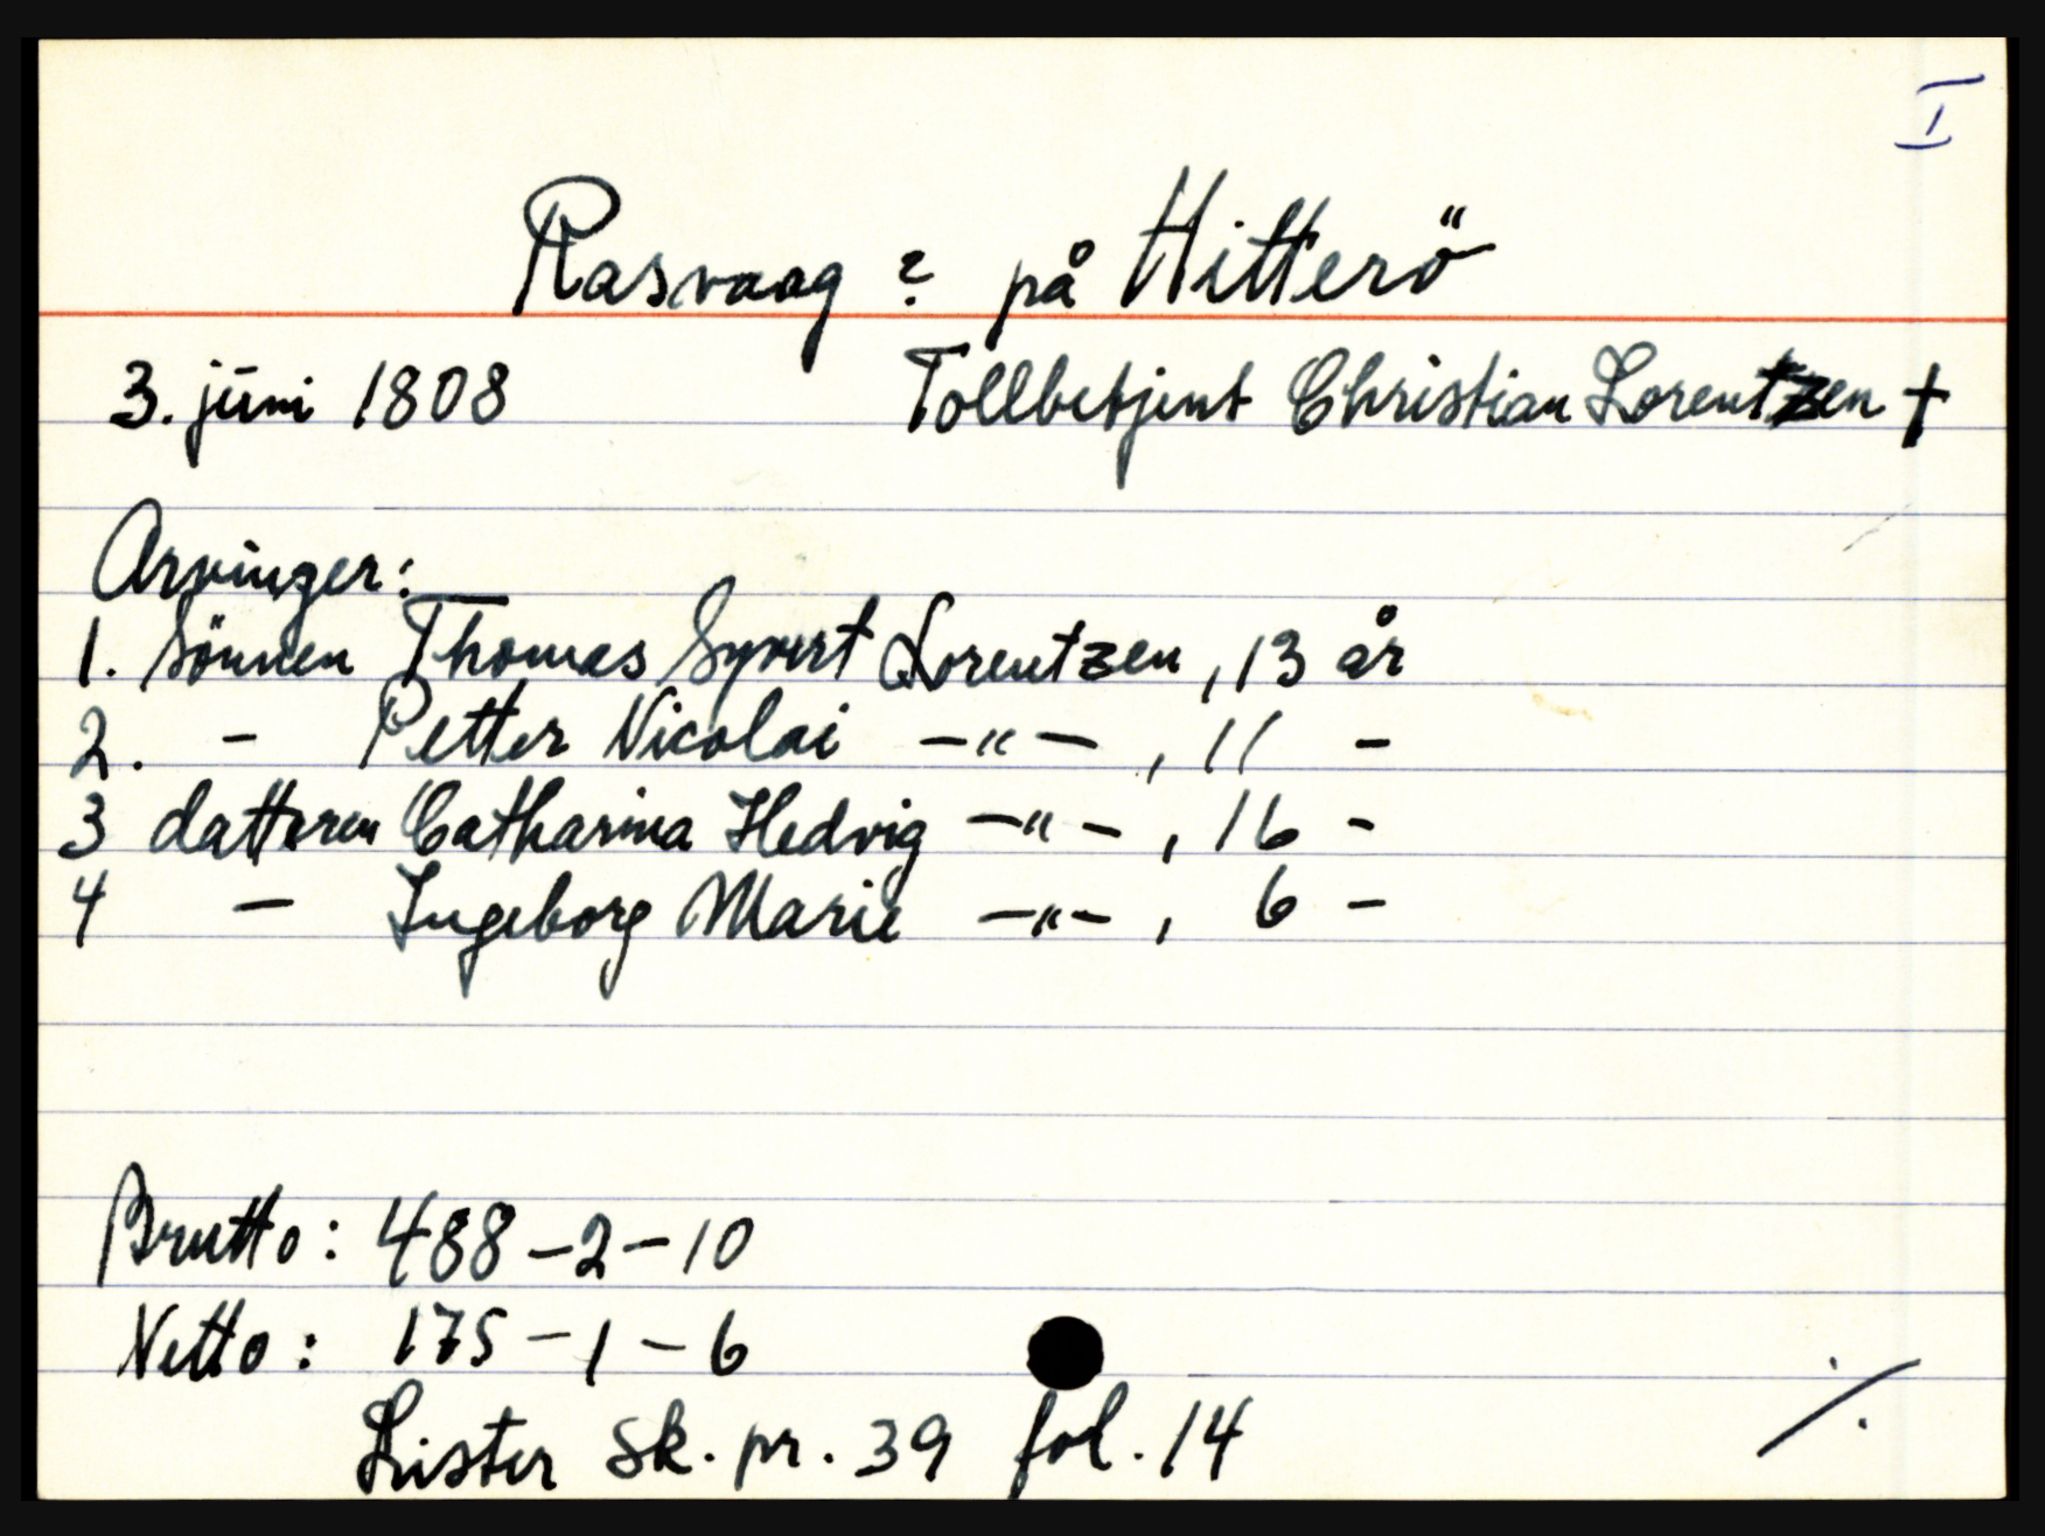 I
Rasvaag ? på Hitterö
3. juni 1808 Tollbetjent Christian Lorentzen †
Arvinger:
1. Sönnen Thomas Syvert Lorentzen, 13 år
2. - Petter Nicolai -"-, 11 -
3 datteren Catharina Hedvig -"-, 16 -
4 - Ingeborg Marie -"-, 6 -
Brutto: 488-2-10
Netto: 175-1-6
Lister Sk. pr. 39 fol. 14
./.